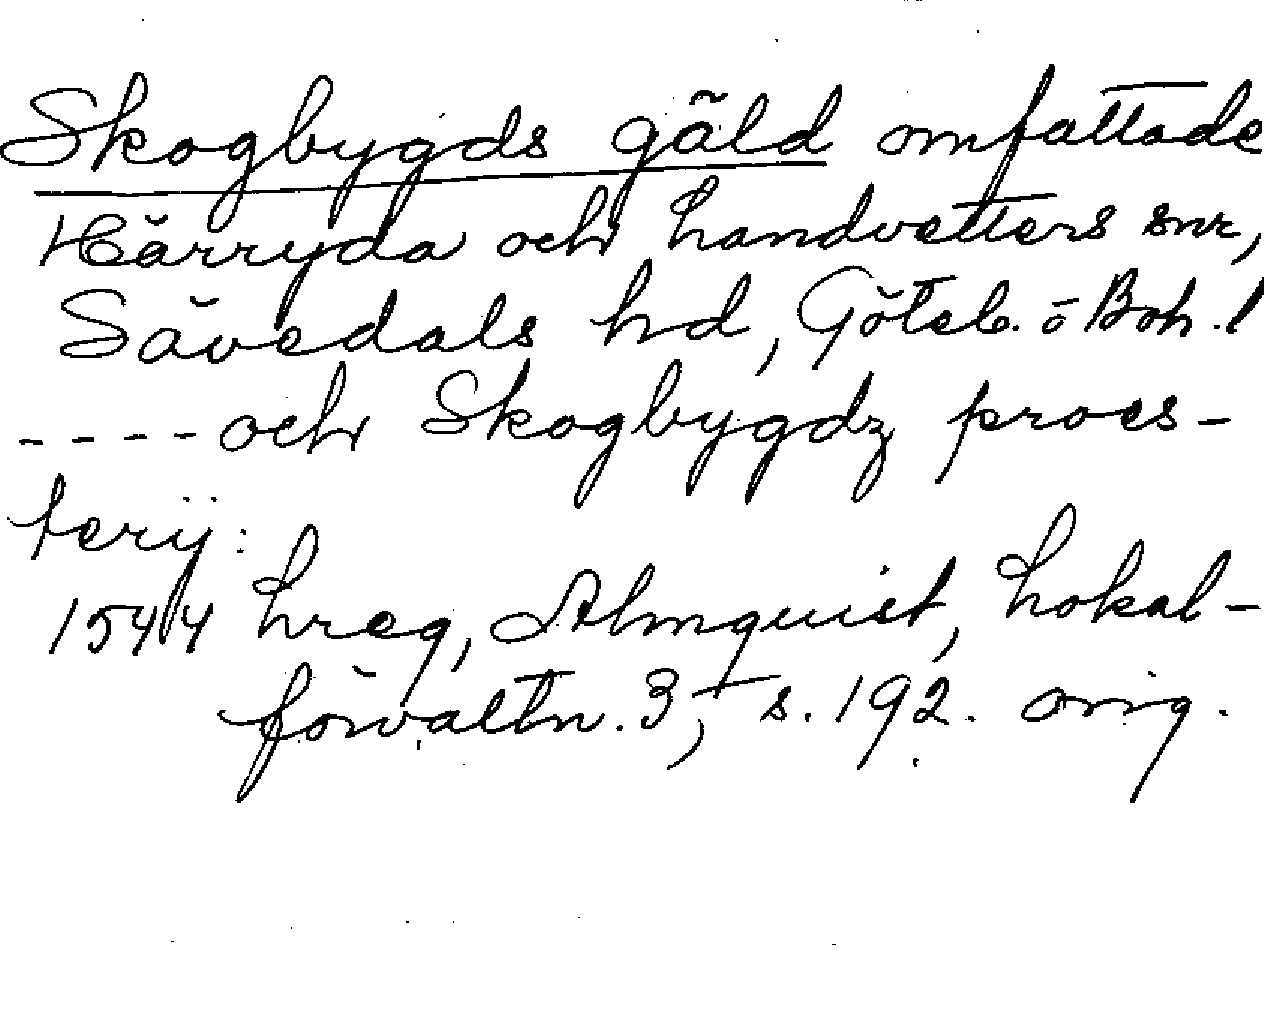 Skogbygds gäld omfattade
Härryda och Landvetters snr,
Sävedals hd, Göteb. o Boh. l
- - - - och Skogbygdz proes-
terij:
1544 Lreg, Almquist, Lokal-
förvaltn. 3, s. 192. orig.